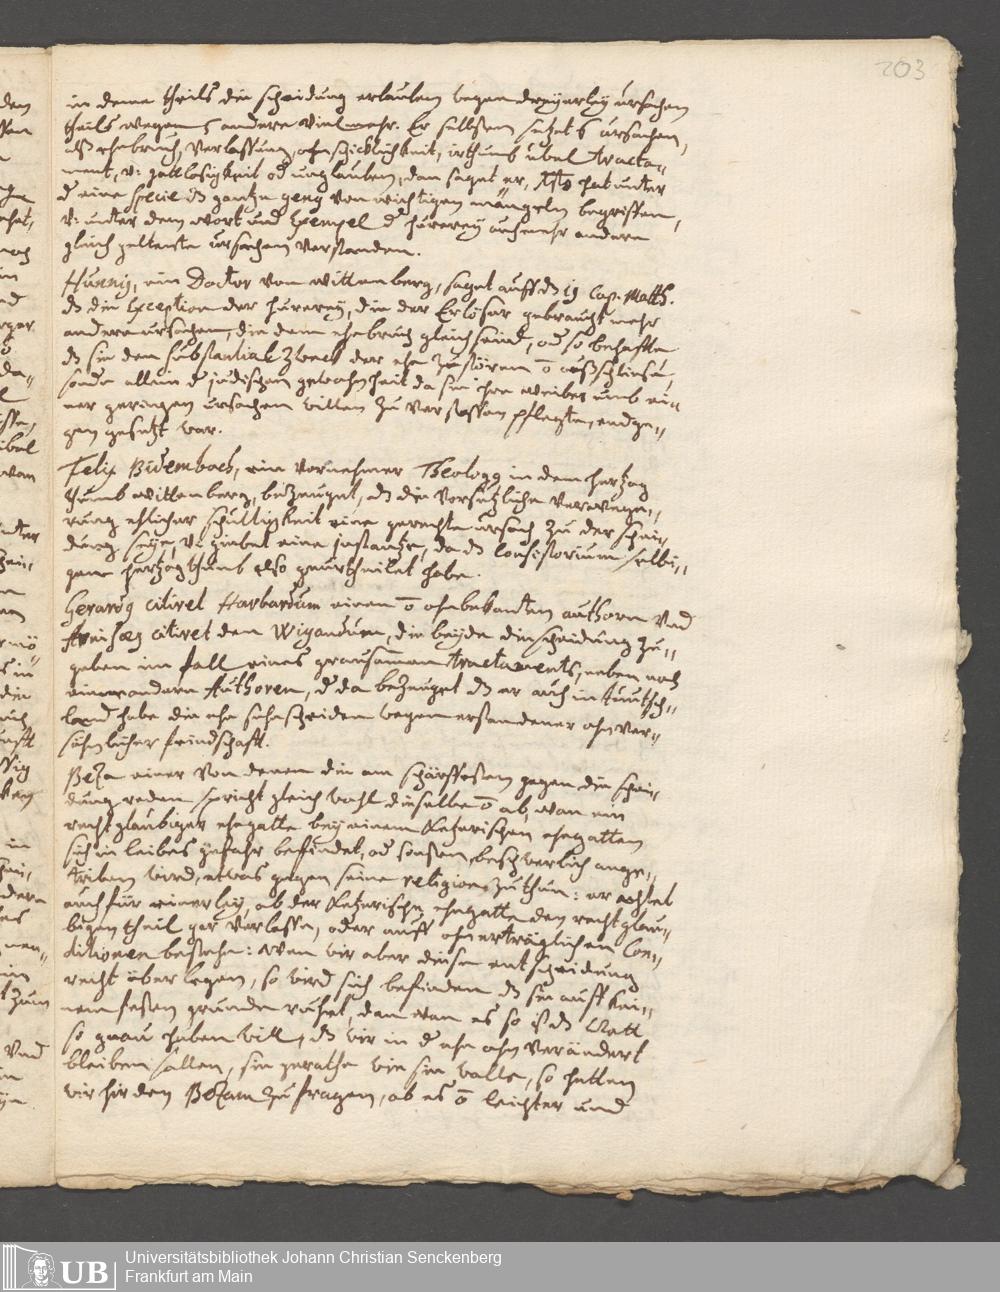 203
in deme theils die scheidung erlauben wegen dreyerley ursachen
theils wegen 5 andere viel mehr. Er selbsten setzet 6 ursachen,
alß ehebruch, Verlassung, ohnschicklichkeit, irthumb übel tracta-
ment, v: gottlosigkeit od unglauben, dan saget er, Xstq hat under
d eine specie ds gantze genq von wichtigen mängeln begriffen,
v: under dem wort und Exempel d hurerey auch mehr andere
gleich geltente ursachen verstanden.
Hunniq, ein Doctor von wittenberg, saget auff ds 19 Cap. Matth.
ds die Exception der hurerey, die der Erlöser gebraucht mehr
andere ursachen, die dem ehebruch gleich seind, od so behafte
ds sie den substantial zweck der ehe zustören o außschliesse,
sonde allein d jüdischen gewohnheit da sie ihre weiber umb ei-
ner geringen ursachen willen zu verstossen pflegten, endge-
gen gesetzt war.
Felix Bidembach, ein vornehmer Theologq in dem hertzog
thumb wittenberg, bezeuget, ds die vorsetzliche verwege-
rung ehlicher schultigkeit eine gerechte ursach zu der schei-
dung seye, v: giebet eine instantze, da ds Consistorium selbi-
gen hertzogthumb also geurtheilet habe.
Gerardq citiret Havbardum einen o ohnbekanten authorn und
citiret den Wigandum, die beyde die scheidung zu-
geben im fall eines grausamen tractaments, neben noch
einer andern Authoren, d da bezeuget ds er auch in teutsch-
land habe die ehe sehe scheiden wegen erstandener ohn ver-
söhnlicher feindschafft.
Beza einer von denen die am schärffesten gegen die schei-
dung reden spricht gleich wohl dieselbe o ab, wan ein
recht glaubiger ehegatte bey einem Ketzerischen ehegatten
sich in leibes gefahr befindet, od sonsten beschwerlich ange-
triben wird, etwas gegen seine religion zuthun: er achtet
auch für einerley, ob der Ketzerische ehegatte den recht glau-
bigen theil gar verlasse, oder auff ohnerträglichen Con-
ditionen bestehe: wan wir aber diese entscheidung
recht überlegen, so wird sich befinden ds sie auff kei-
nem festen grunde ruhet, dan wan es so ist ds Gott
so genau haben will, ds wir in d ehe ohn verändert
bleiben sollen, sie gerathe wie sie wolle, so hetten
wir hir den Bezam zu fragen, ob es o leichter und
Universitätsbibliothek Johann Christian Senckenberg
Frankfurt am Main
UB